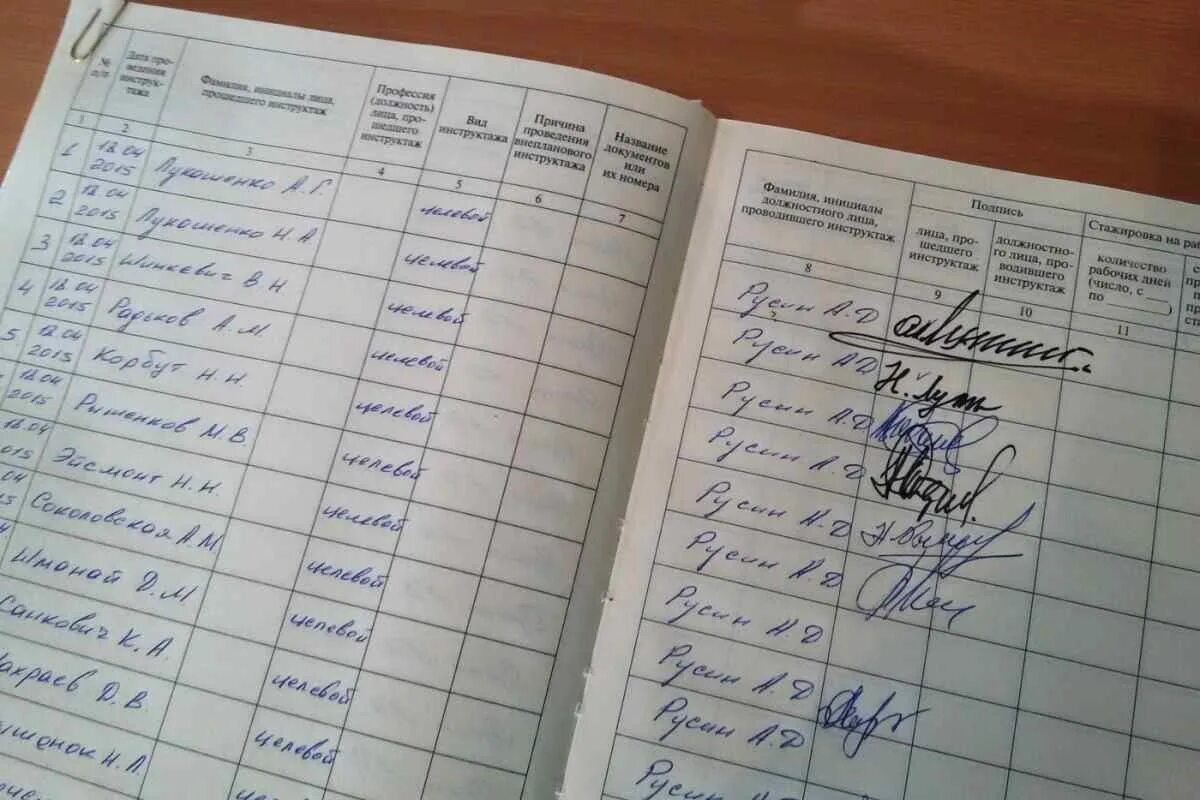 № п/п
Дата про-
ведения
инструк-
тажа
Фамилия, инициалы лица,
прошедшего инструктаж
Профессия
(должность)
лица, про-
шедшего
инструктаж
Вид
инструктажа
Причина
проведения
внепланового
инструктажа
Название
документов
или
их номера
1 2 3 4 5 6 7
1 12.04 2015 Лукошенко А.Г. целевой
2 12.04 2015 Лукошенко Н.А целевой
3 12.04 2015 Шинкевич В.Н. целевой
4 12.04 2015 Радьков А.М. целевой
5. 12.04 2015 Корбут Н.Н. целевой
12.04 2015 Рыженков М.В. целевой
12.04 2015 Эйсмонт Н.Н. целевой
04 Соколовская А.М целевой
Шманай Д.М. целевой
Санкович К.А. целевой
Д.В. целевой
Н.Л. целевой
Фамилия, инициалы
должностного лица,
проводившего инструктаж
Подпись
лица, про-
шедшего
инструктаж
должностно-
го лица, про-
водившего
инструктаж
Стажировка на ра
количество
рабочих дней
(число, с ___
по ___ )
8 9 10 11
Русин А.Д
Русин А.Д
Русин А.Д
Русин А.Д
Русин А.Д
Русин А.Д
Русин А.Д
Русин А.Д
Русин А.Д
Русин